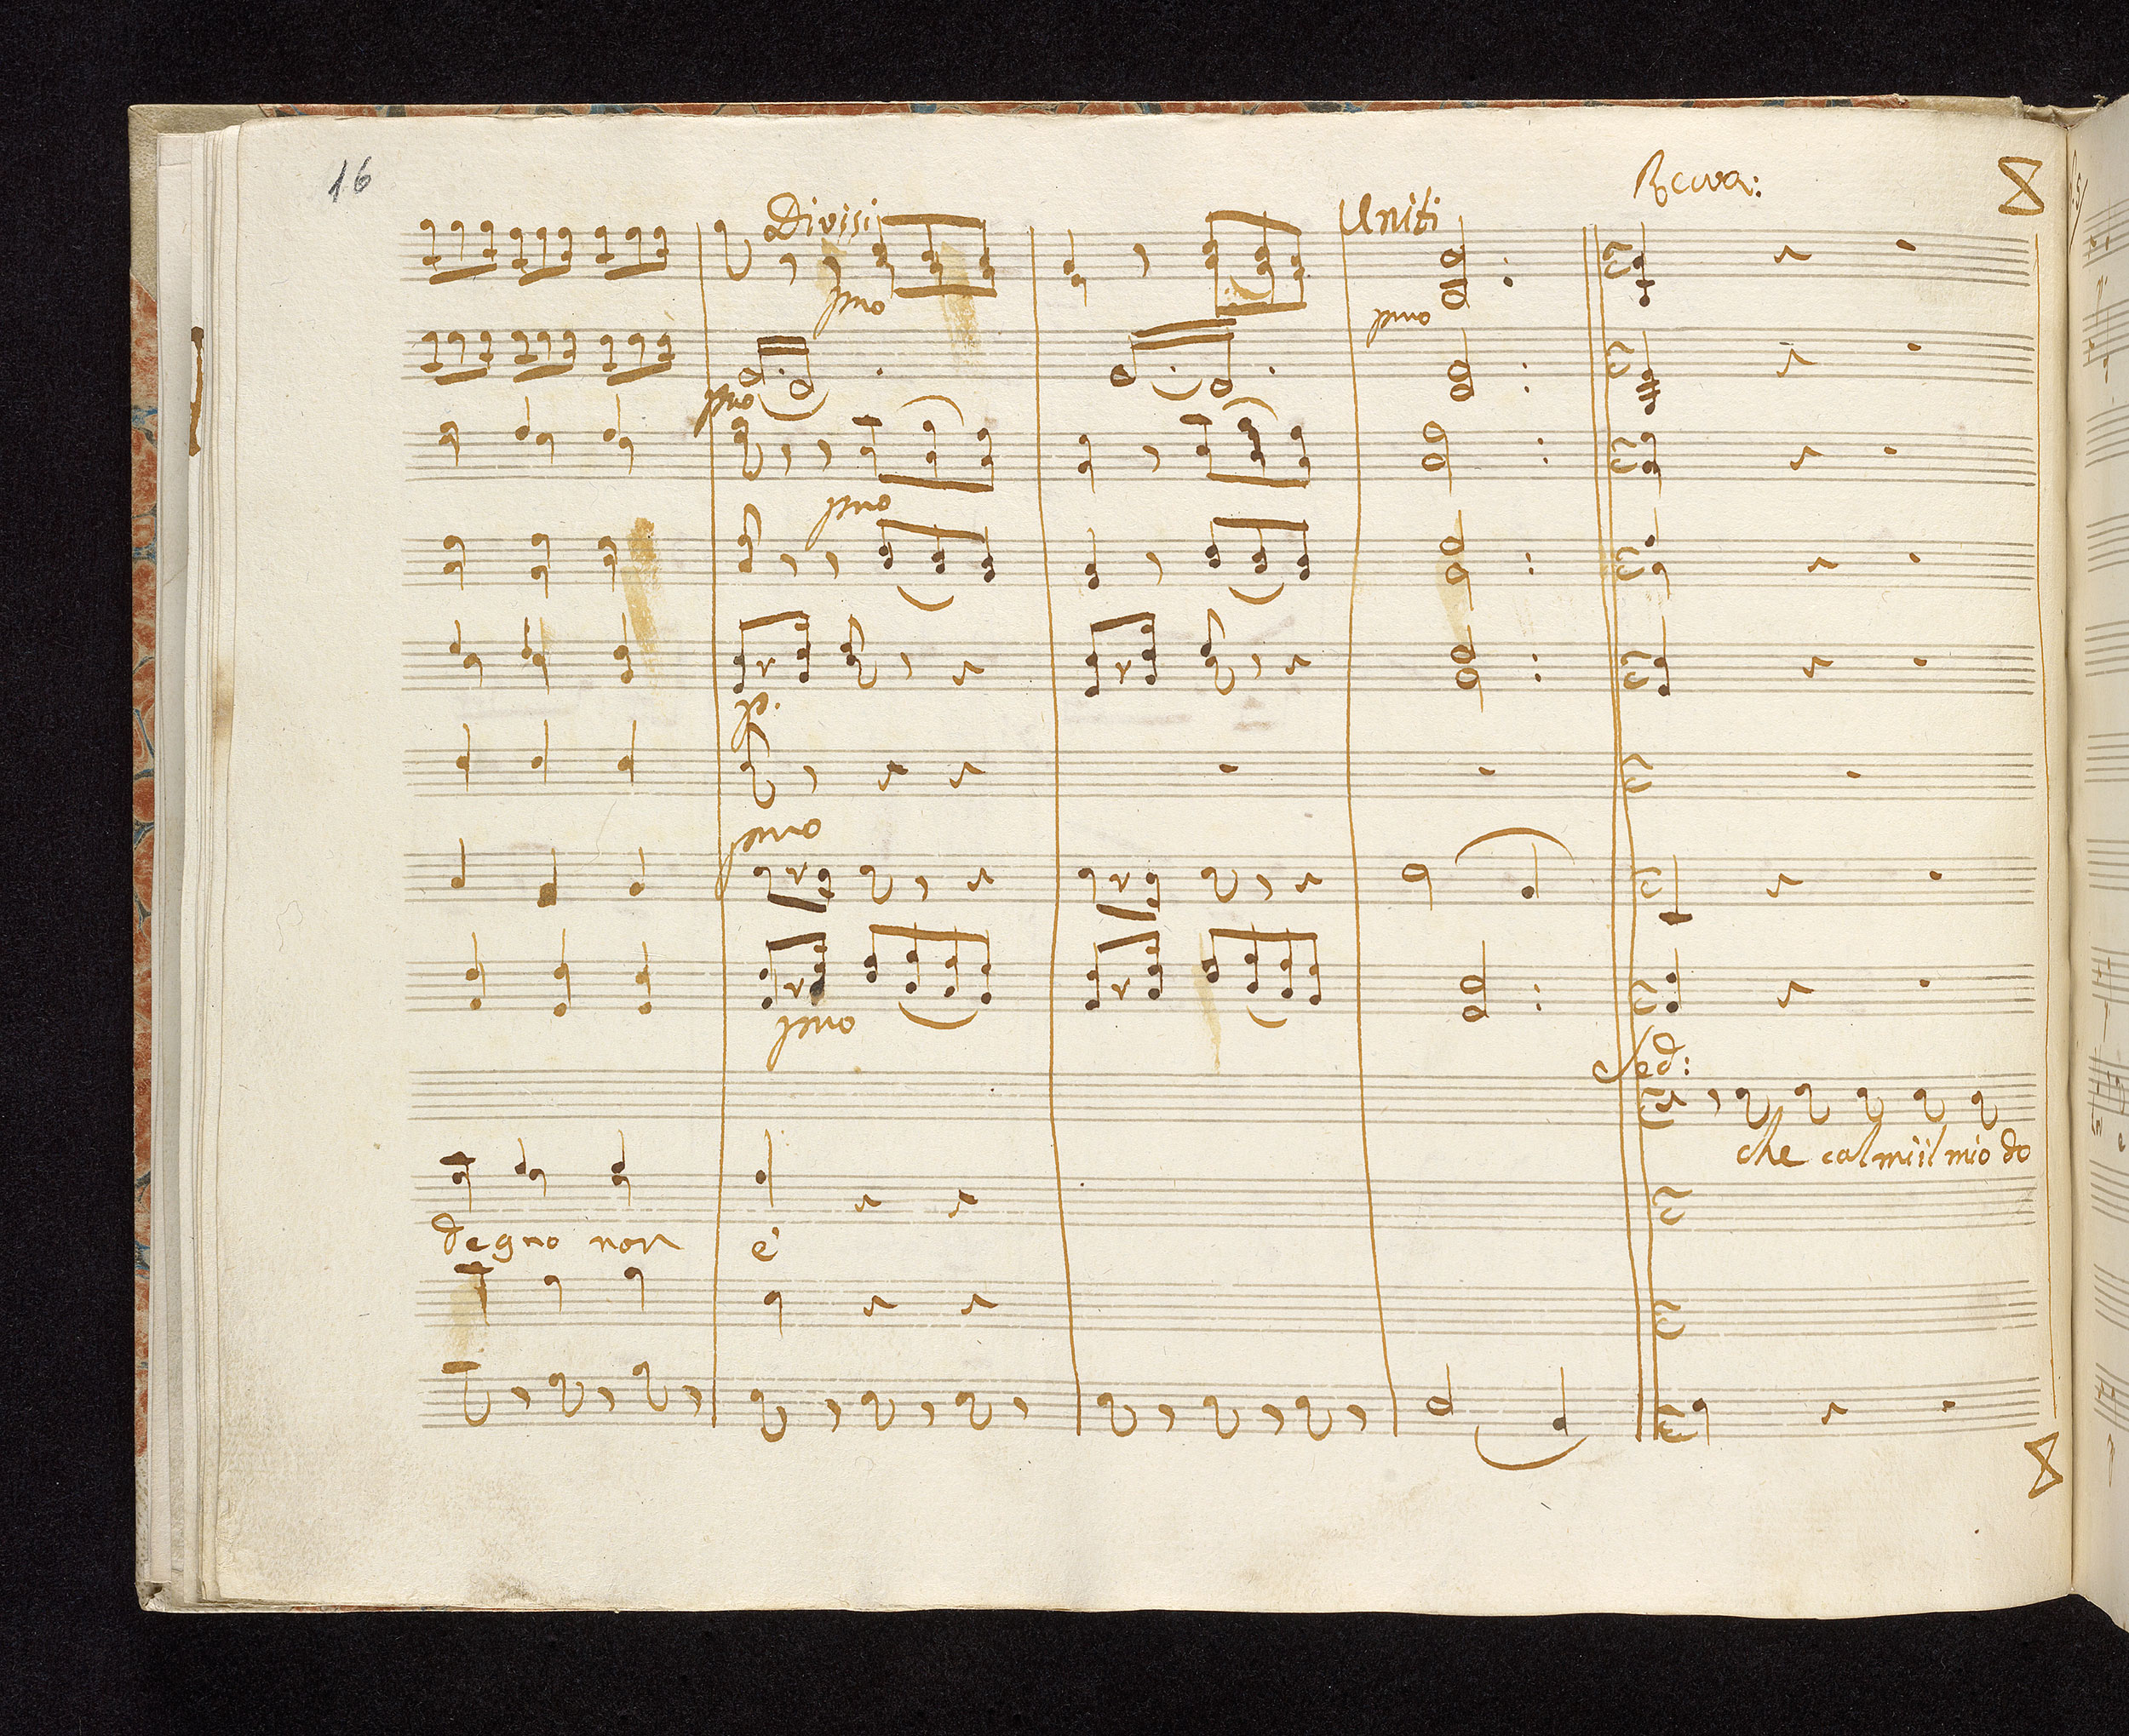 16
Recvo:
Divisi
Uniti
pmo
pmo
pmo
pmo
p.
pmo
pmo
Sed:
che calmi il mio do
degno non è